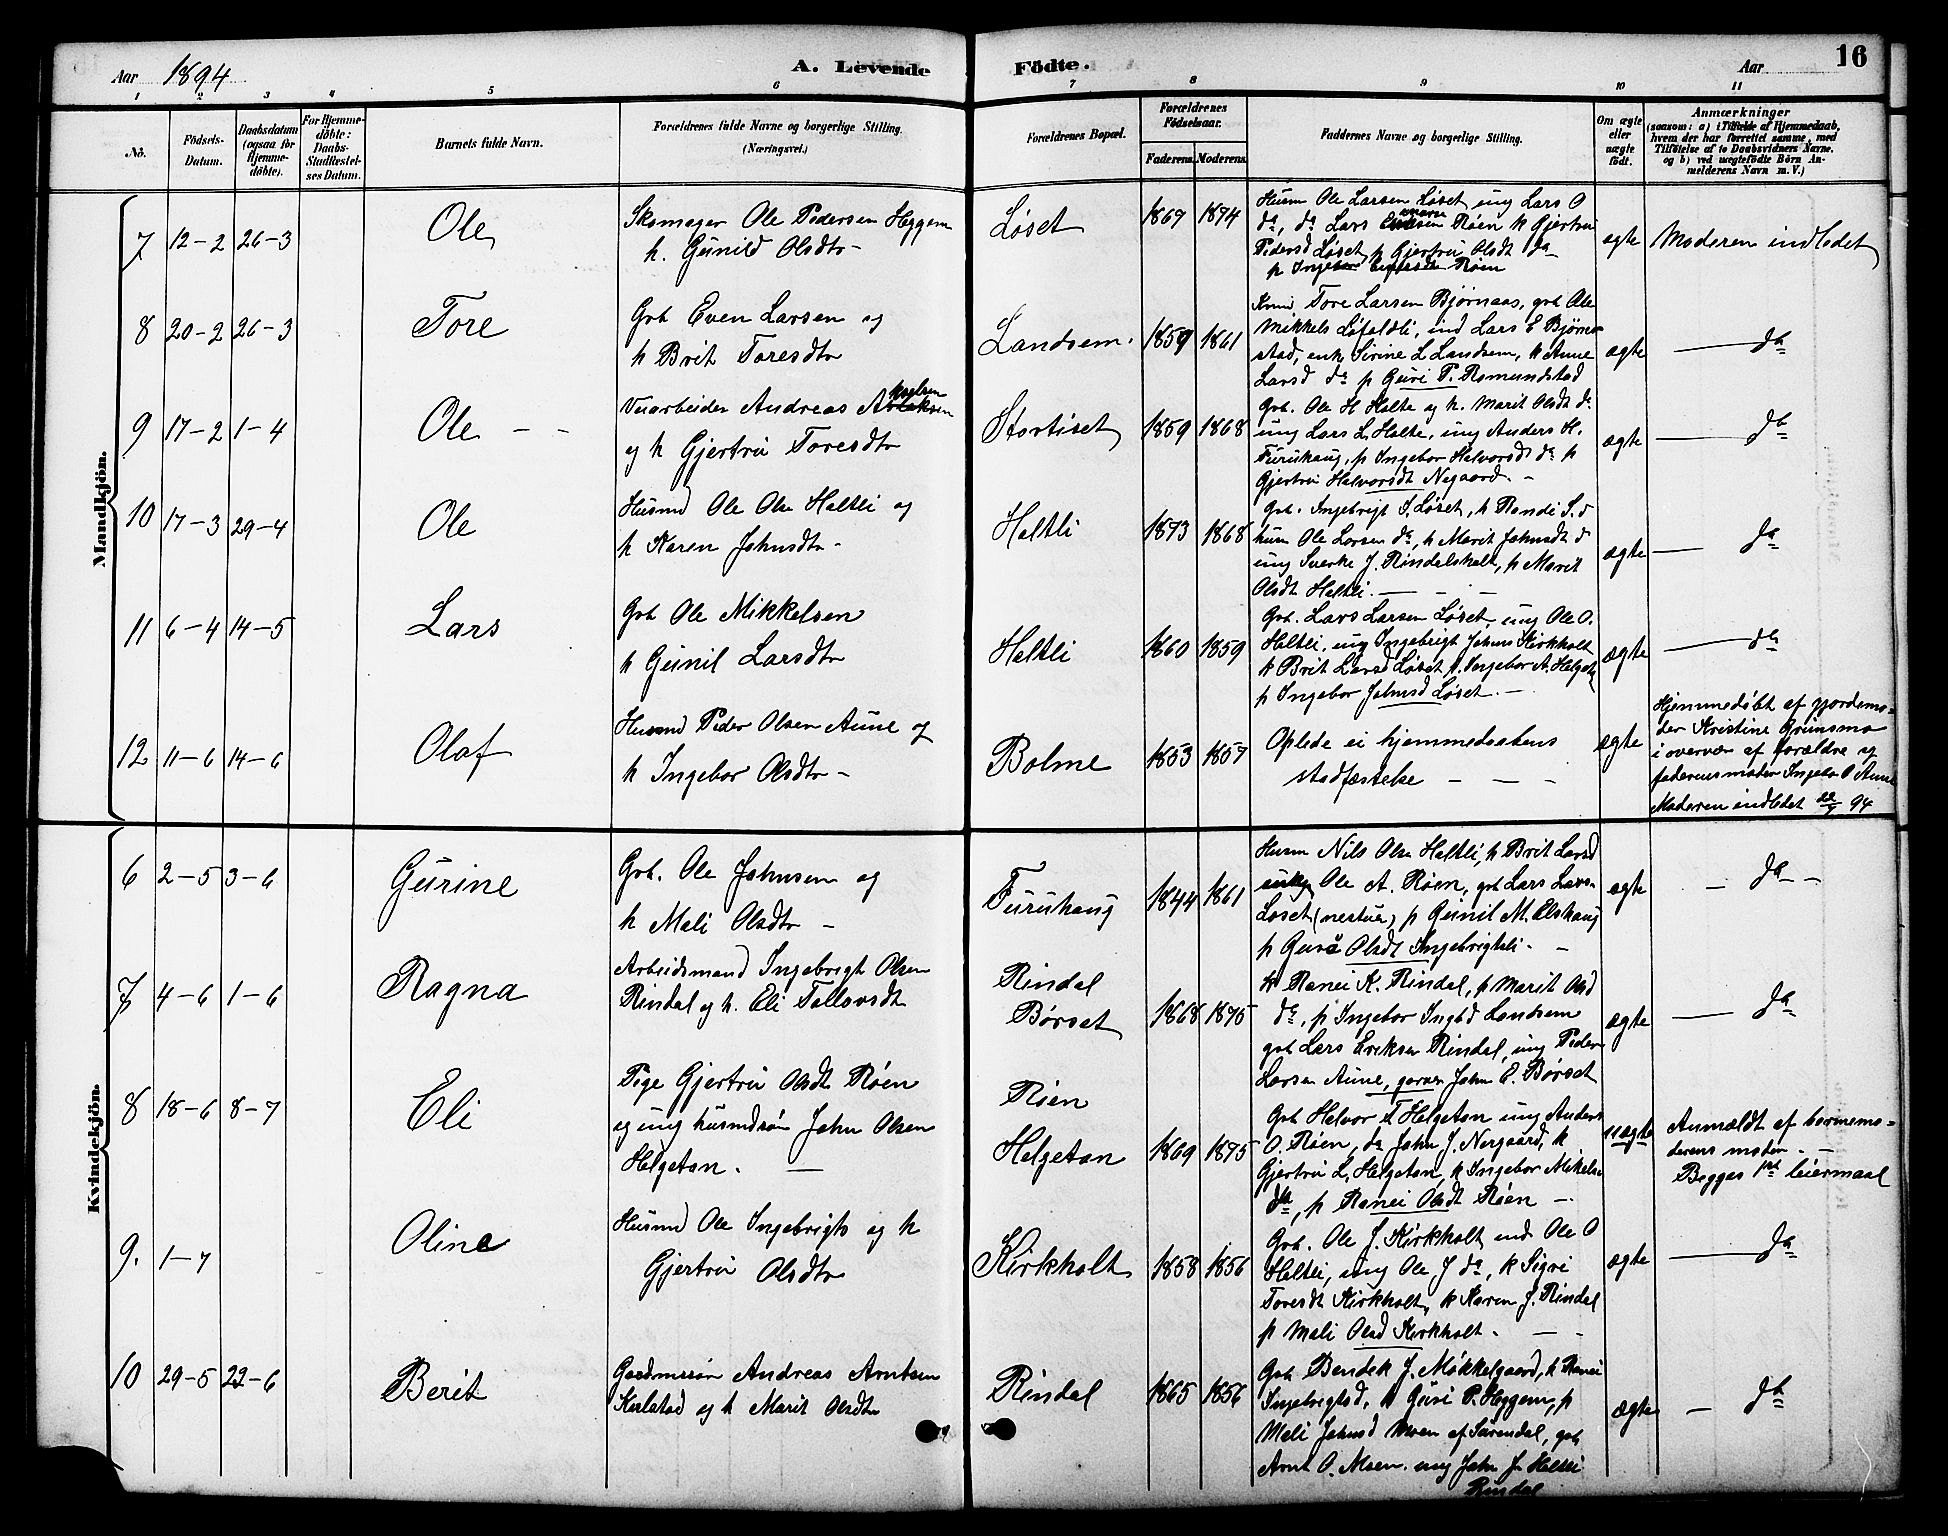 Aar 1894
A. Levende Födte.
Aar
16
1 2 3 4 5 6 7 8 9 10 11
No.
Födsels-Datum.
Daabsdatum (ogsaa for Hjemme-döbte).
For Hjemme-döbte: Daabs-Stadfæstel-ses Datum.
Barnets fulde Navn.
Forældrenes fulde Navne og borgerlige Stilling.
(Næringsvei.)
Forældrenes Bopæl.
Forældrenes Födselsaar.
Faderens. Moderens.
Faddernes Navne og borgerlige Stilling.
Om ægte eller uægte födt.
Anmærkninger
(saasom: a) i Tilfælde af Hjemmedaab,
hvem der har forrettet samme, med
Tilföielse af to Daabsvidners Navne.
og b) ved uægtefödte Börn An-
melderens Navn m. V.)
Mandkjön.
7 12-2 26-3 Ole
Skomager Ole Pedersen Heggem
h. Gunild Olsdtr -
Løset 1867 1874
Husm Ole Larsen Løset, ung Lars O
do, do Lars Røen k Gjertru
Pedersd Løset, p Gjertru Olsdt da
p Ingebor Røen
ægte Moderen indledet
8 20-2 26-3 Tore
Grb Even Larsen og
h Brit Toresdtr
Landsem. 1859 1861
Tore Larsen Bjørnaas, grb Ole
Mikkels Lifaldli, ind Lars E Bjørn-
stad, enk Sirine L Landsem, k Anne
Larsd do p Guri T. Romundstad
ægte — da
9 17-2 1-4 Ole - -
Veiarbeider Andreas
og h Gjertru Toresdtr
Stortiset 1859 1868
Grb. Ole H Holte og h. Marit Olsdt do
ung Lars L. Holte, ung Anders H.
Furuhaug, p Ingebor Halvorsd do p
Gjertru Halvorsdt Negaard. -
ægte — da
10 17-3 29-4 Ole
Husmd Ole Olsn Holtli og
h Karen Johnsdtr -
Holtli 1873 1868
Grb. Ingebrigt S. Løset, k Randi S. d
husm Ole Larsen do, h Marit Johnsdt d
ung Sverke J. Rindalsholt, p Marit
Olsdt Holtli. - - -
ægte — da
11 6-4 14-5 Lars
Grb Ole Mikkelsen
h Gunil Larsdtr
Holtli 1860 1859
Grb. Lars Larsen Løset, ung Ole O.
Holtli, ung Ingebrigt Johns Kirkholt
k Brit Larsd Løset p. Ingebor A. Helget
p Ingebor Johnsd Løset. -
ægte — da
12 11-6 14-6 Olaf
Husmd Peder Olsen Aune og
h Ingebor Olsdtr -
Bolme 1853 1857
Oplede ei hjemmedaabens
stadfæstelse - - -
ægte
Hjemmedøbt af gjordemo-
der Kristine Grinsmo
i overvær af forældre og
faderens moder Ingebor O Aune
Moderen indledet 22/7 94
Kvindekjön.
6 2-5 3-6 Gurine
Grb. Ole Johnsen og
h Mali Olsdtr -
Furuhaug 1844 1861
Husm Nils Olsn Holtli, h Brit Larsd
Ole A. Røen, grb Lars Lars-
Løset (nestua) p Gunil M. Elshaug
p Guro Olsdt Ingebrigtsli. -
ægte - da -
7 4-6 1-6 Ragna
Arbeidsmand Ingebrigt Olsen
Rindal og h. Eli Tollovsdt
Rindal
Børset 1868 1875
k Ranei K. Rindal, p Marit Olsd
do, p Ingebor Ingbd Landsem
grb Lars Eriksen Rindal, ung Peder
Larsen Aune, garver John E. Børset
ægte — da
8 18-6 8-7 Eli
Pige Gjertru Olsdt Røen
og ung husmdsøn John Olsen
Helgeton. —
Røen
Helgeton 1869 1875
Grb Halvor T Helgeton ung Anders
O. Røen, do John J. Nergaard, k
Gjertru L. Helgeton, k Ingebor Mikels-
da, p Ranei Olsdt Røen -
uægte
Anmældt af barnemo-
derens moder. -
Begges 1st leiermaal
9. 1-7 Oline
Husmd Ole Ingebrigts og h
Gjertru Olsdtr
Kirkholt 1858 1856
Grb. Ole J. Kirkholt ind Ole O
Holtli, ung Ole J do, k Sigri
Toresdt Kirkholt, k Karen J. Rindal
p Mali Olsd Kirkholt. - -
ægte — da
10 29-5 22-6 Berit
Gaardmssøn Andreas Arntsen
Karlstad og h Marit Olsdtr
Rindal 1865 1856
Grb Bendek J. Møkkelgaard, k Ranei
Ingebrigtsd, k Guri P. Heggem, p
Mali Johnsd Moen af Surendal, grb
Arnt O. Moen. ung John J Holtli
Rindal
ægte - da